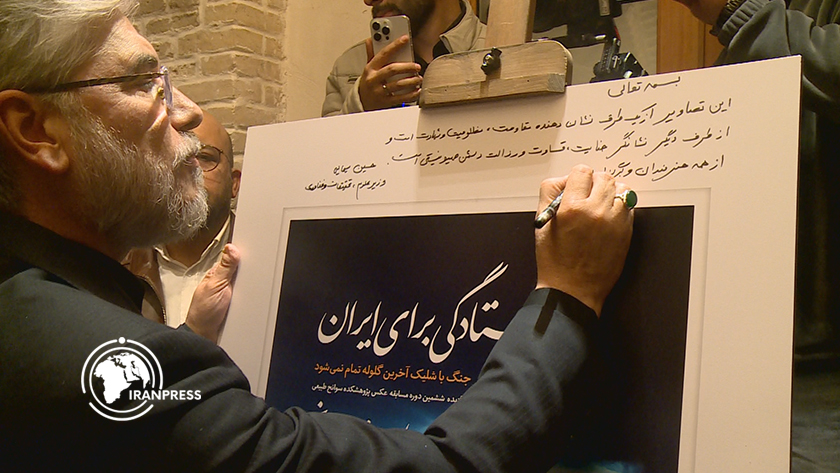 بسمه تعالی
این تصاویر از یک طرف نشان دهنده مقاومت، مظلومیت و شهادت است و
از طرف دیگر نشانگر جنایت، قساوت و رذالت دشمن صهیونیستی است.
از همه هنرمندان و
حسین سیمایی
وزیر علوم، تحقیقات و فناوری
ستادگی برای ایران
جنگ با شلیک آخرین گلوله تمام نمی‌شود
ششمین دوره مسابقه عکس پژوهشکده سوانح طبیعی
IRANPRESS